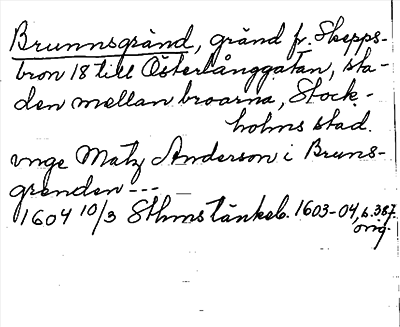 Brunnsgränd, gränd fr. Skepps-
bron 18 till Österlånggatan, sta-
den mellan broarna, Stock-
holms stad.
vnge Matz Anderson i Bruns-
grenden ---
1604 10/3 Sthms tänkeb. 1603-04, s. 387.
orig.